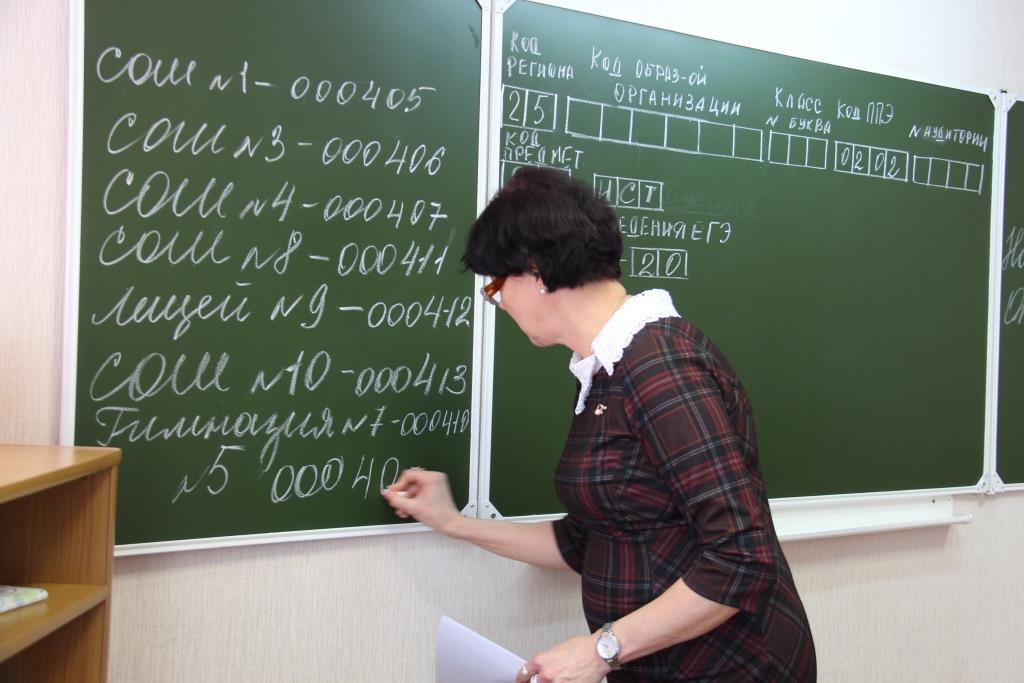 СОШ №1 - 000405
СОШ №3 - 000406
СОШ №4 - 000407
СОШ №8 - 000411
Лицей №9 - 000412
СОШ №10 - 000413
Гимназия №7 - 000410
№5 00040
КОД РЕГИОНА
25
КОД ОБРАЗ-ОЙ ОРГАНИЗАЦИИ
КЛАСС
N БУКВА
КОД ППЭ
0202
N АУДИТОРИИ
КОД
ПРЕДМЕТ
ИСТ
ЕДЕНИЯ ЕГЭ
-20